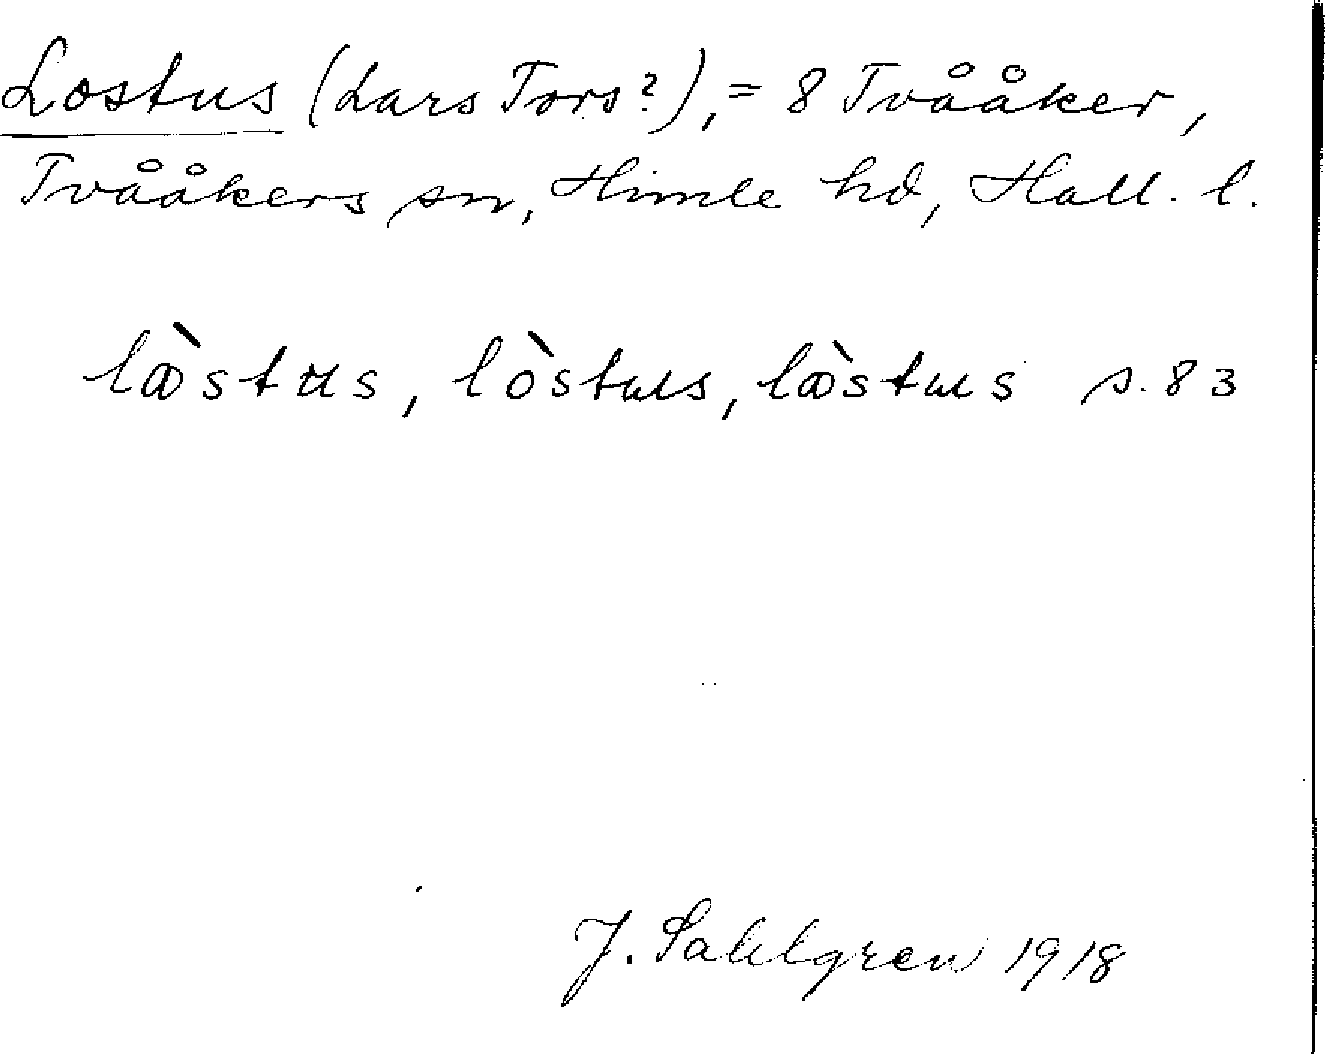 Lostus (Lars Tors?), = 8 Tvååker,
Tvååkers sn, Himle hd, Hall. l.
lòstus, lòstus, lòstus s. 83
J. Sahlgren 1918